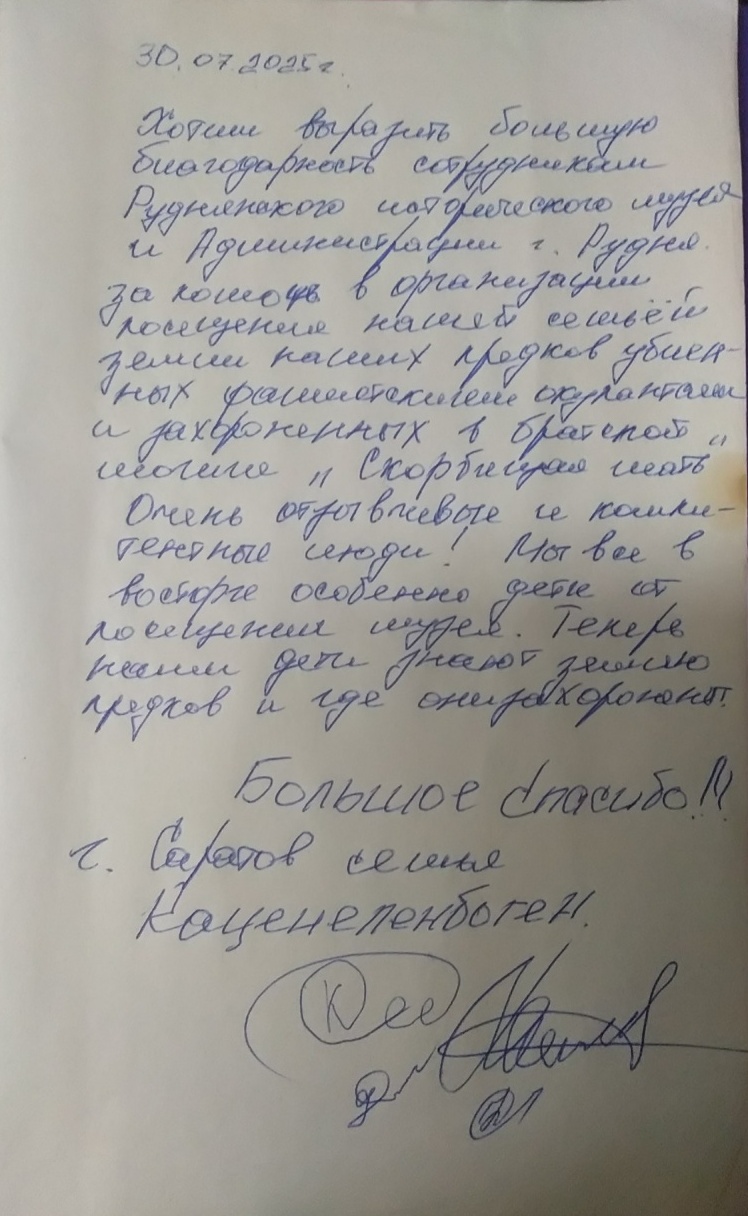 30.07.2025г.
Хотим выразить большую
благодарность сотрудникам
Руднянского исторического музея
и Администрации г. Рудня.
за помощь в организации
посещения нашей семьёй
земли наших предков убиен-
ных фашистскими окупантами
и захороненных в братской
могиле „Скорбящая мать"
Очень отзывчивые и компи-
тентные люди! Мы все в
восторге особенно дети от
посещения музея. Теперь
наши дети знают землю
предков и где они захоронены.
Большое спасибо!!!
г. Саратов семья
Каценеленбоген.